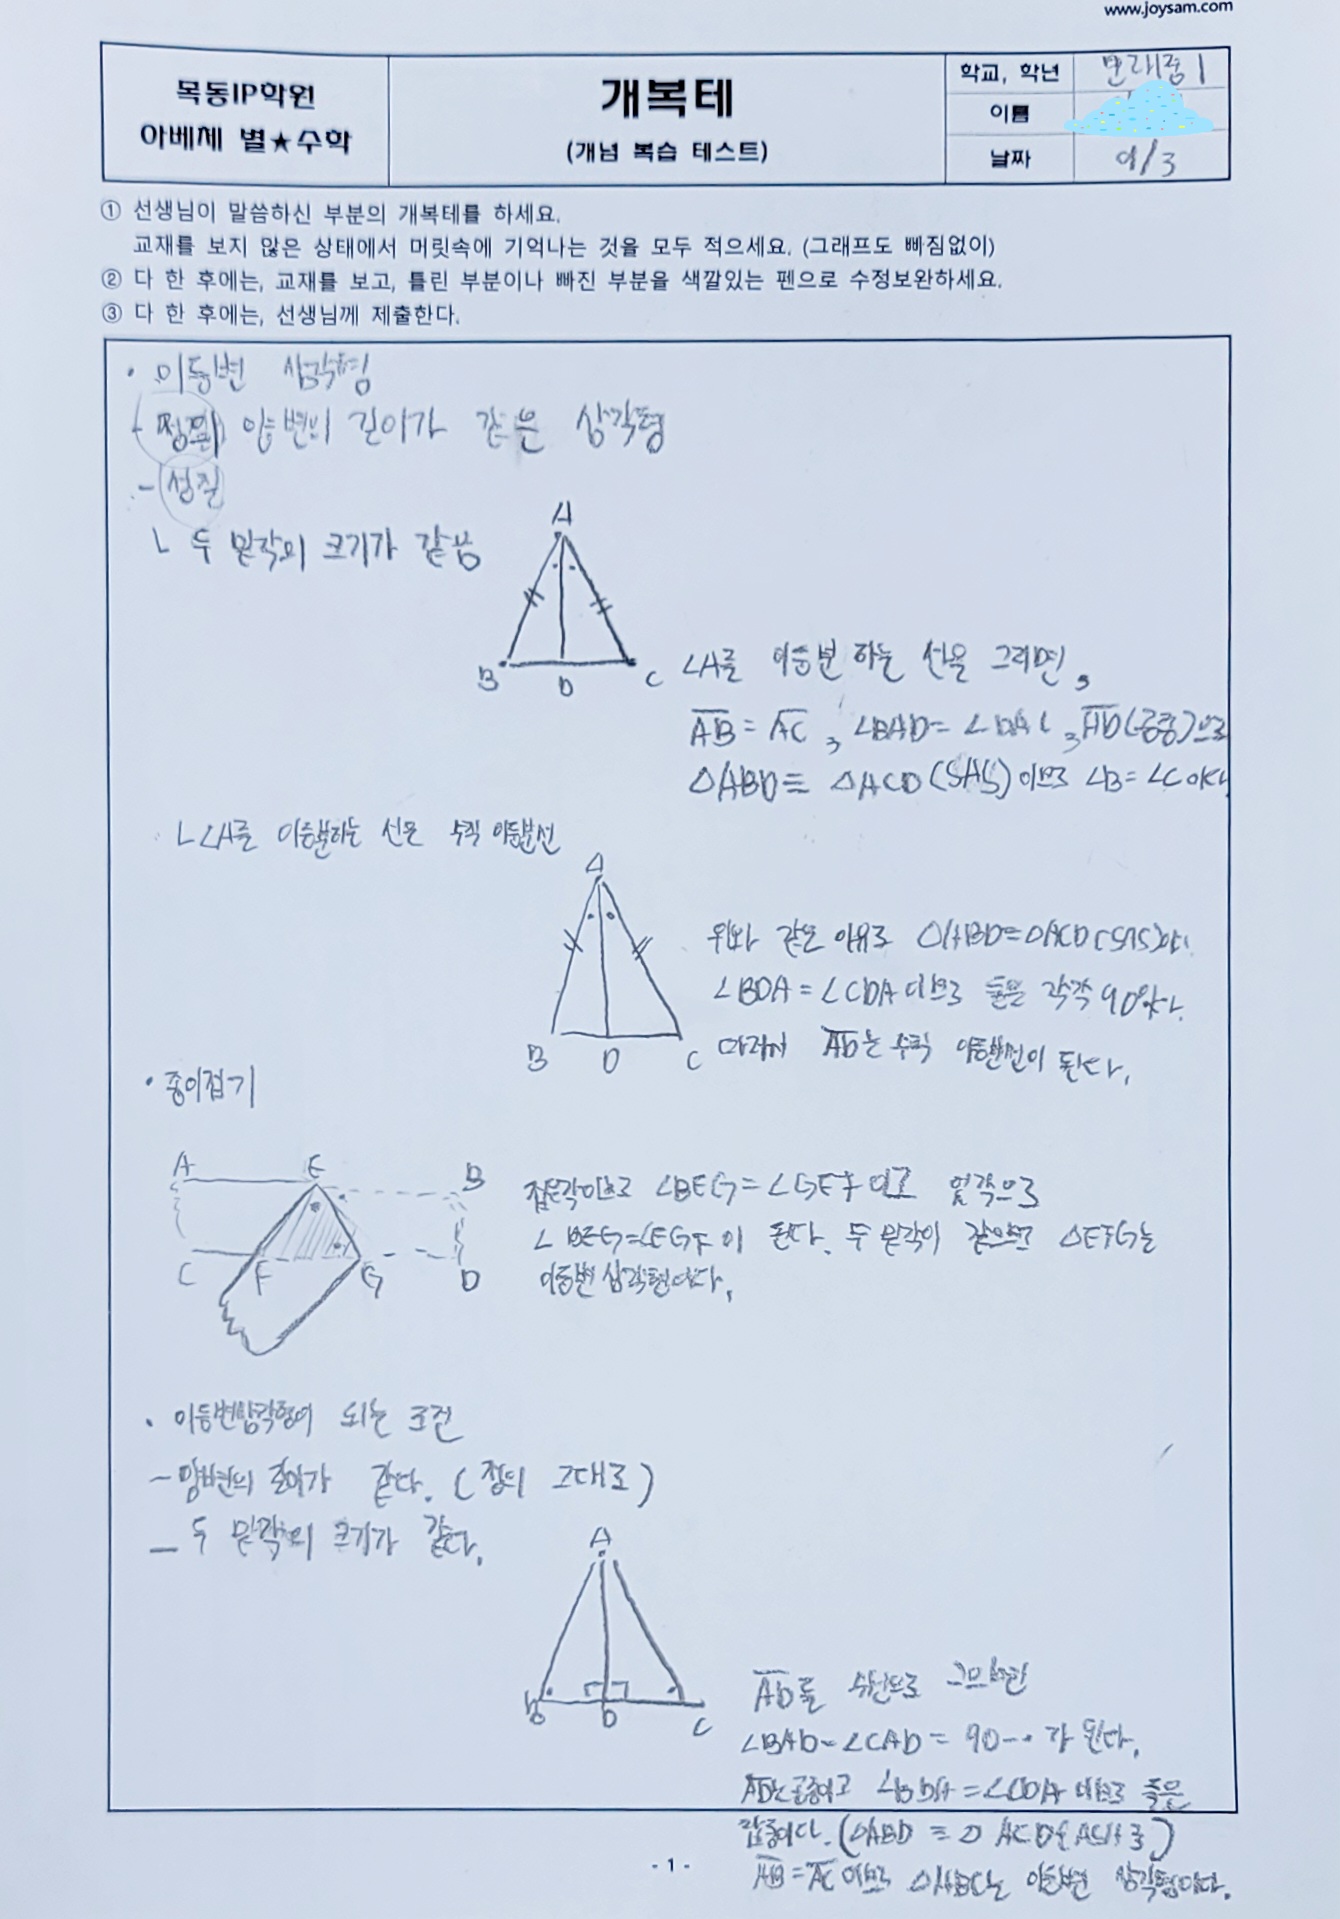 www.joysam.com
목동IP학원
아베체 별★수학
개복테
(개념 복습 테스트)
학교, 학년
문래중 1
이름
날짜
9/3
① 선생님이 말씀하신 부분의 개복테를 하세요.
교재를 보지 않은 상태에서 머릿속에 기억나는 것을 모두 적으세요. (그래프도 빠짐없이)
② 다 한 후에는, 교재를 보고, 틀린 부분이나 빠진 부분을 색깔있는 펜으로 수정보완하세요.
③ 다 한 후에는, 선생님께 제출한다.
· 이등변 삼각형
- 정의 양변의 길이가 같은 삼각형
- 성질
ㄴ 두 밑각의 크기가 같음
A
B D C
∠A를 이등분 하는 선을 그리면,
AB = AC, ∠BAD = ∠DAC, AD(공통)으로
△ABD ≡ △ACD (SAS)이므로 ∠B = ∠C이다.
ㄴ ∠A를 이등분하는 선은 수직 이등분선
A
B D C
위와 같은 이유로 △ABD≡△ACD(SAS)다.
∠BDA = ∠CDA 이므로 둘은 각각 90°다.
따라서 AD는 수직 이등분선이 된다.
· 종이접기
A E B
C F G D
접은각이므로 ∠BEG = ∠GEF이고 엇각으로
∠BEG=∠EGF이 된다. 두 밑각이 같으므로 △EFG는
이등변 삼각형이다.
· 이등변삼각형이 되는 조건
- 양변의 길이가 같다. (정의 그대로)
- 두 밑각의 크기가 같다.
A
B D C
AD를 수선으로 그으면
∠BAD = ∠CAD = 90-• 가 된다.
AD는 공통이고 ∠BDA = ∠CDA 이므로 둘은
합동이다. (△ABD ≡ △ACD ASA로)
AB = AC이므로 △ABC는 이등변 삼각형이다.
- 1 -